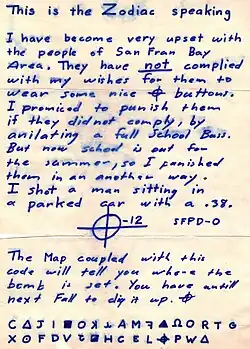 This is the Zodiac speaking
I have become very upset with
the people of San Fran Bay
Area. They have not complied
with my wishes for them to
wear some nice ⌖ buttons.
I promiced to punish them
if they did not comply, by
anilating a full School Buss.
But now school is out for
the summer, so I punished
them in an another way.
I shot a man sitting in
a parked car with a .38.
⌖-12 SFPD-0
The Map coupled with this
code will tell you where the
bomb is set. You have antill
next Fall to dig it up. ⌖